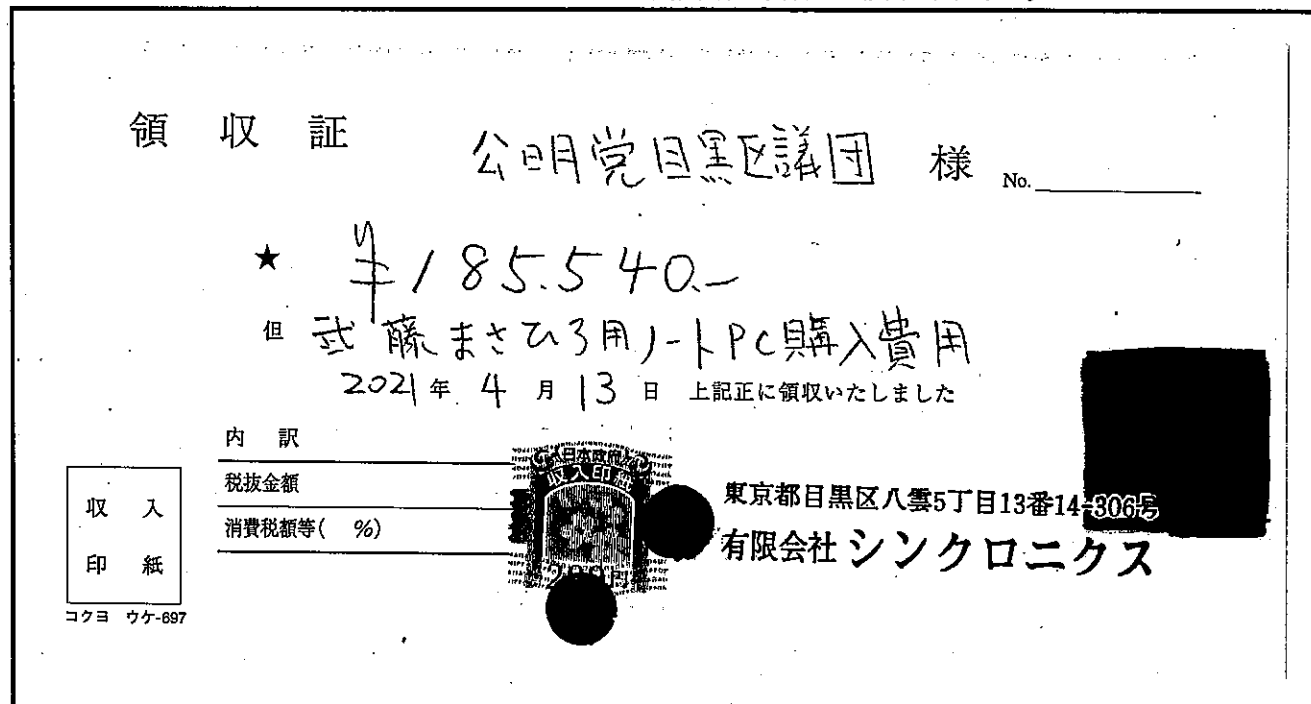 領 収 証 公明党目黒区議団 様 No.
★ ¥185.540.-
但 武藤まさひろ用ノートPC購入費用
2021年 4月 13日 上記正に領収いたしました
内 訳
税抜金額
消費税額等( %)
収 入
印 紙
コクヨ ウケ-697
日本政府
収入印紙
200円
東京都目黒区八雲5丁目13番14-306号
有限会社 シンクロニクス